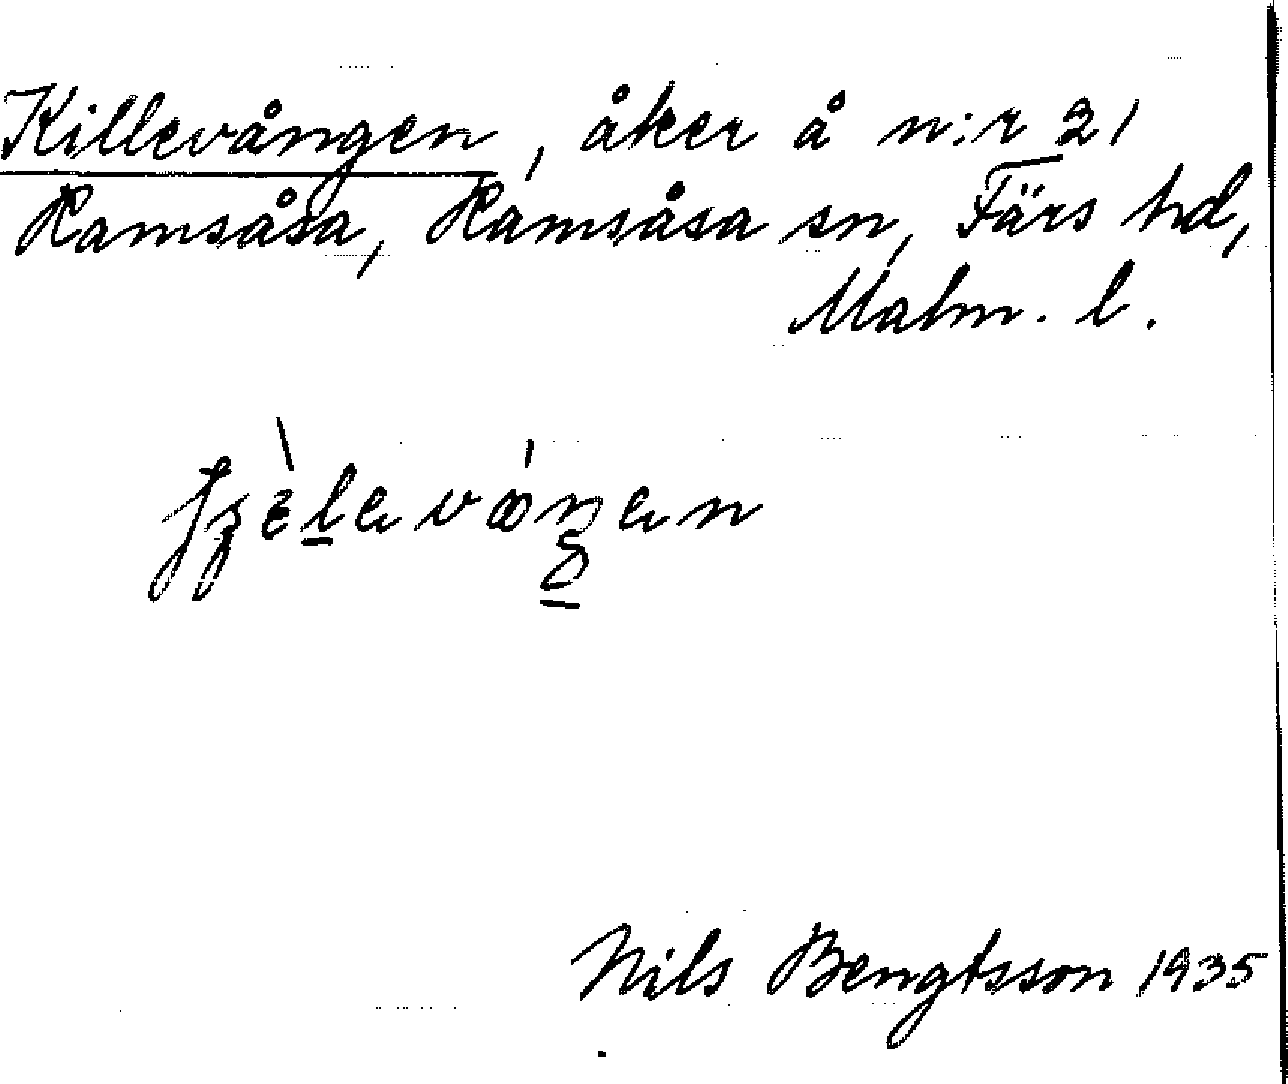 Killevången, åker å n:r 21
Ramsåsa, Ramsåsa sn, Färs hd,
Malm. l.
Nils Bengtsson 1935